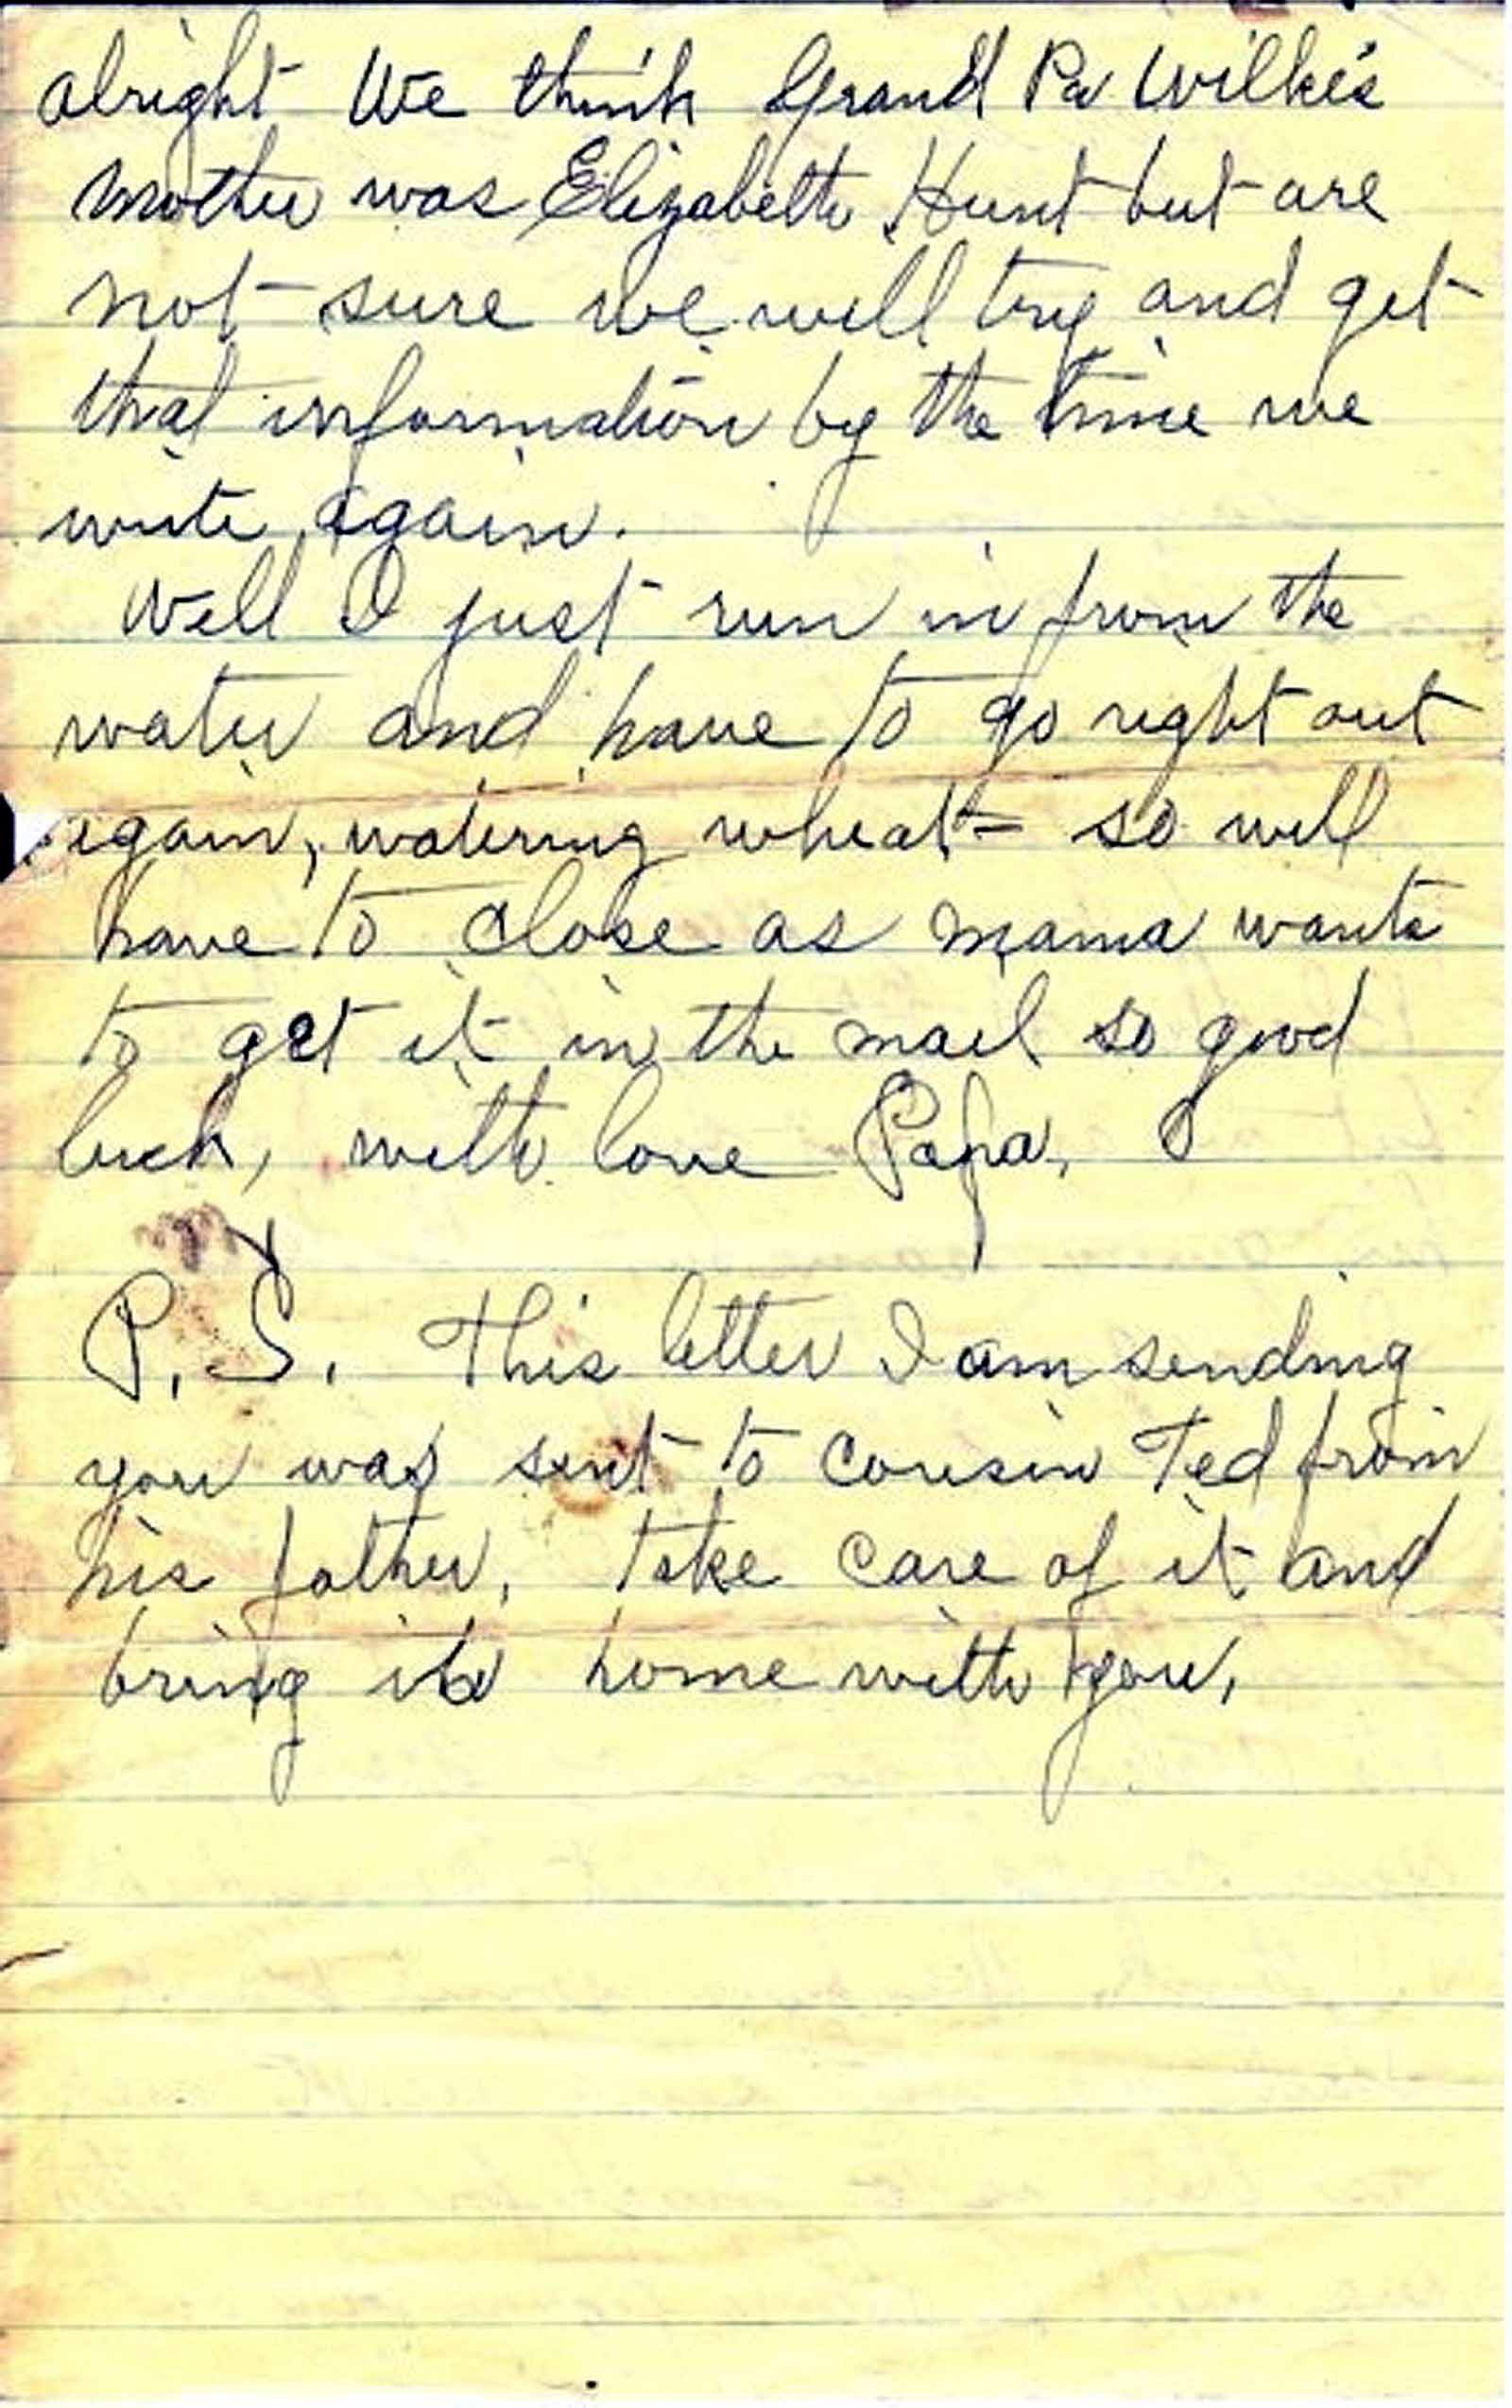 alright We think Grand Pa Wilkes
mother was Elizabeth Hunt but are
not sure we will try and get
that information by the time we
write again.
Well I just run in from the
water and have to go right out
again, watering wheat - so will
have to close as mama wants
to get it in the mail so good
luck, with love Papa,
P.S. This letter I am sending
you was sent to cousin Ted from
his father, take care of it and
bring it home with you,